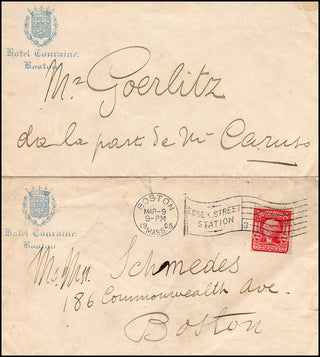 Hotel Touraine.
Boston.
Mr Goerlitz
da la part de Mr Caruso
BOSTON
MAR-9
9-PM
1905
MASS.
ESSEX STREET
STATION
3
Hotel Touraine.
Boston.
Schmedes
186 Commonwealth Ave.
Boston